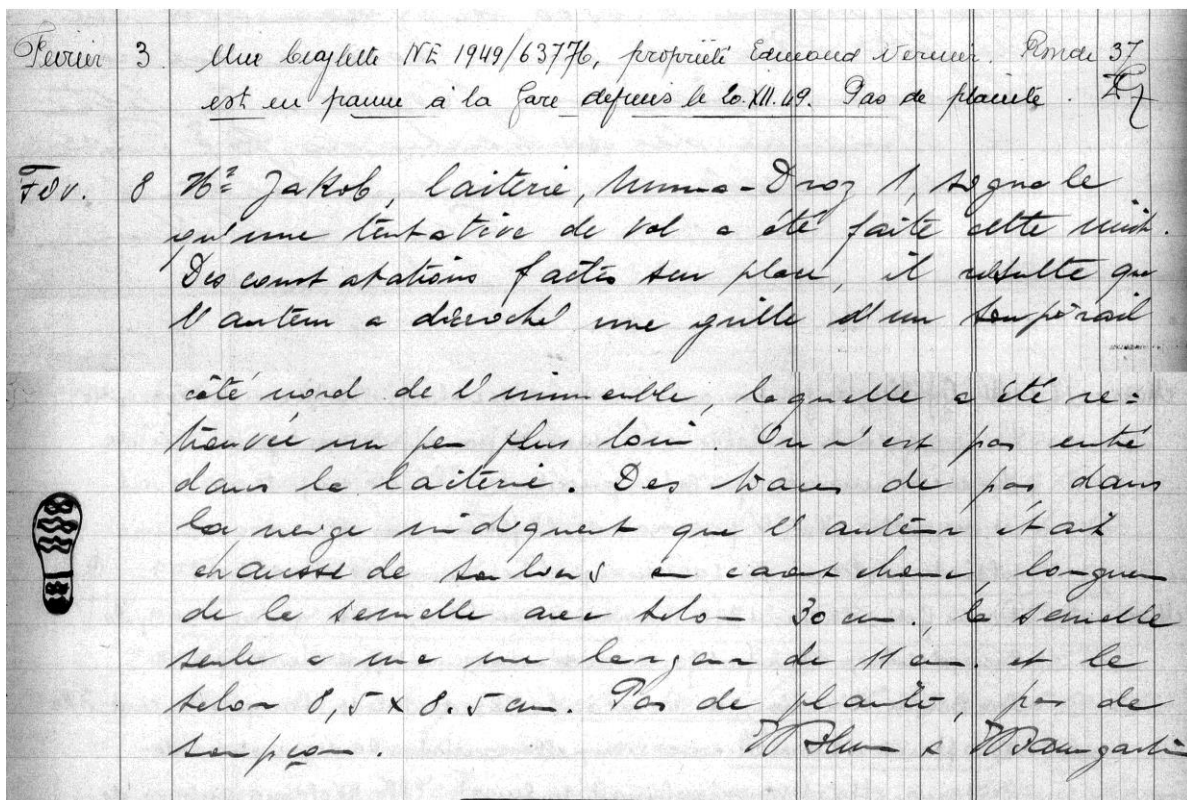 Février 3. Une bicyclette NE 1949/63776, propriété Edmond Vernier. Ronde 37
est en panne à la Gare depuis le 20.XII.49. Pas de plainte.
Fév. 8 Mr Jakob, laiterie, Numa-Droz 1, signale
qu'une tentative de vol a été faite cette nuit.
Des constatations faites sur place, il résulte que
l'auteur a décroché une grille d'un soupirail
côté nord de l'immeuble, laquelle a été re=
trouvée un peu plus loin. On n'est pas entré
dans la laiterie. Des traces de pas dans
la neige indiquent que l'auteur était
chaussé de souliers en caoutchouc, longueur
de la semelle avec talon 30 cm., la semelle
seule a une largeur de 11 cm. et le
talon 8,5 x 8.5 cm. Pas de plainte, pas de
soupçon.